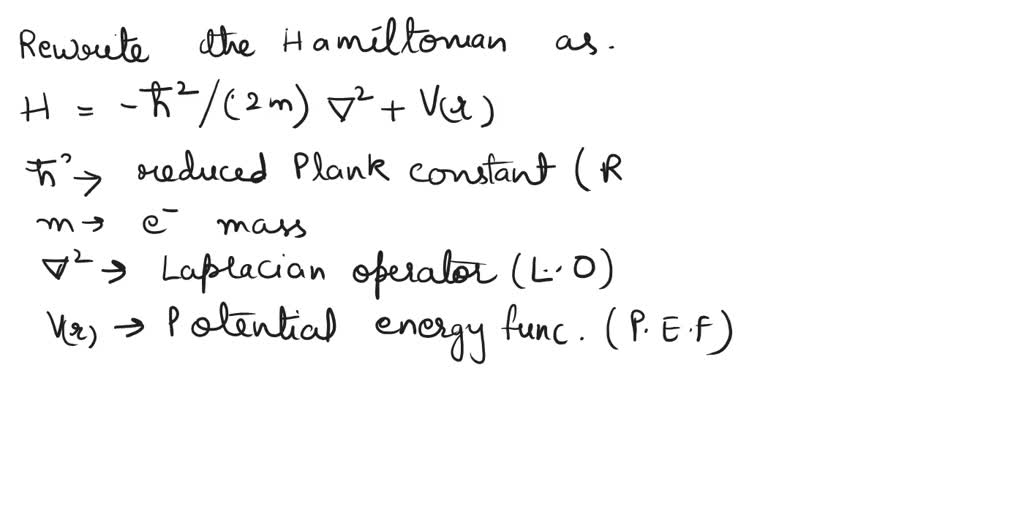 Rewrite the Hamiltonian as.
H = -ħ²/(2m) ∇² + V(r)
ħ² → reduced Plank constant (R
m → e⁻ mass
∇² → Laplacian operator (L.O)
V(r) → Potential energy func. (P.E.F)